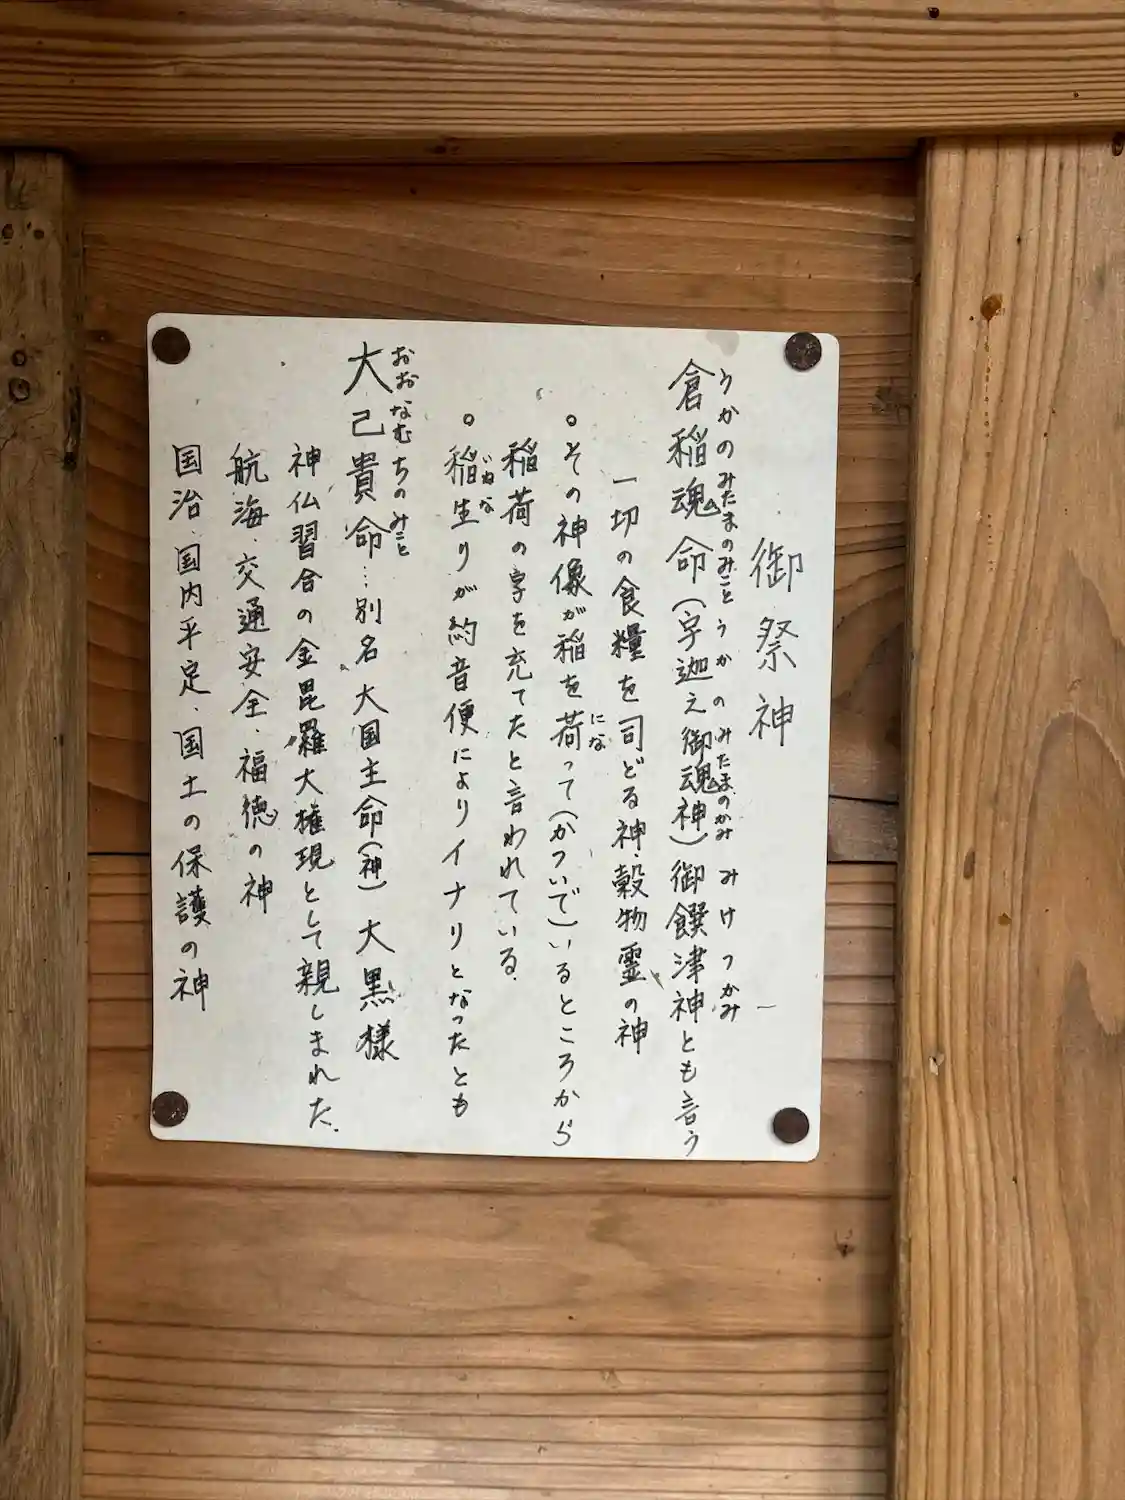 御祭神
倉稲魂命(宇迦之御魂神)御饌津神とも言う
うかのみたまのみこと うかのみたまのかみ みけつかみ
一切の食糧を司どる神、穀物霊の神
。その神像が稲を荷って(かついで)いるところから
にな
稲荷の字を充てたと言われている.
。稲生りが約音便によりイナリとなったとも
いねな
大己貴命…別名大国主命(神) 大黒様
おおなむちのみこと
神仏習合の金毘羅大権現として親しまれた.
航海、交通安全、福徳の神
国治、国内平定、国土の保護の神